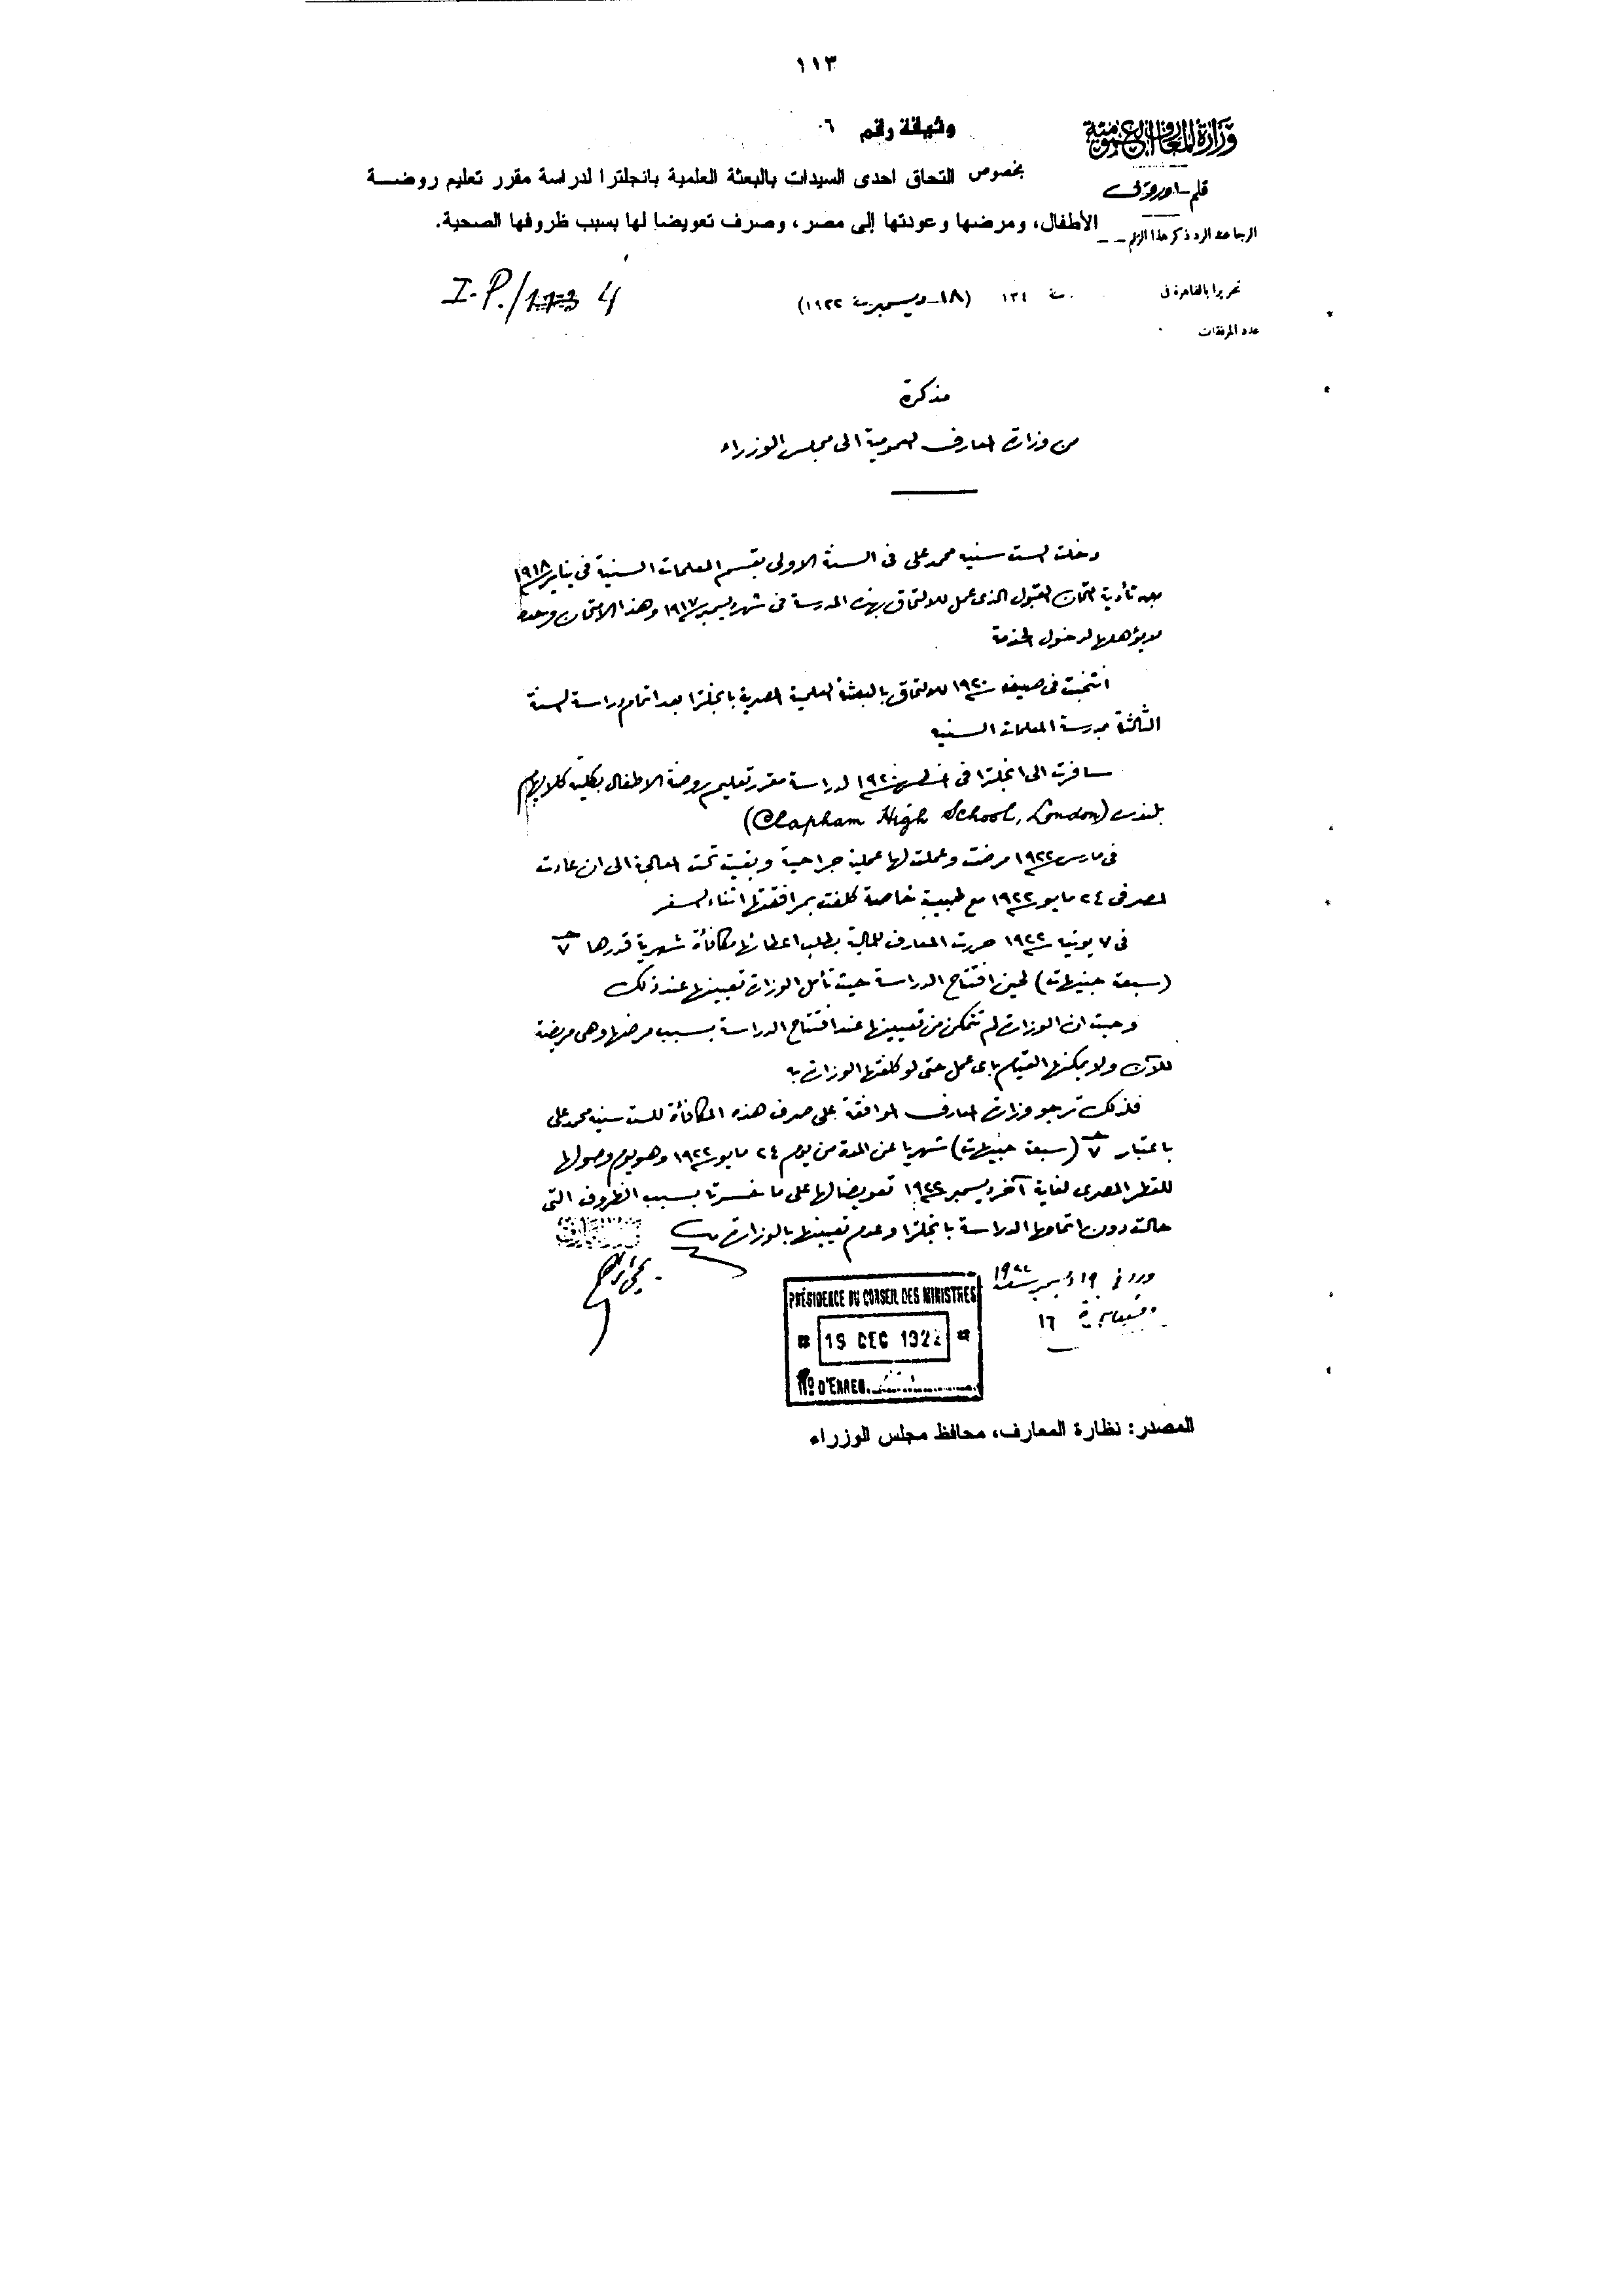 ١١٣
وزارة المعارف العمومية
وثيقة رقم ٦
بخصوص التحاق احدى السيدات بالبعثة العلمية بانجلترا لدراسة مقرر تعليم روضـــة
قلم
الأطفال، ومرضها وعودتها إلى مصر، وصرف تعويضا لها بسبب ظروفها الصحية.
الرجا عند الرد ذكر هذا الرقم
I.P./ 4
تحريرا بالقاهرة فى سنة ١٣٤ (١٨ ديسمبر سنة ١٩٢٢)
عدد المرفقات
مذكرة
من وزارة المعارف العمومية الى مجلس الوزراء
دخلت الست سنيه محمد على فى السنة الاولى بقسم المعلمات السنية فى يناير ١٩١٨
بعد تأدية امتحان القبول الذى عمل للالتحاق بهذه المدرسة فى شهر ديسمبر ١٩١٧ وهذا الامتحان وحده
لا يؤهلها لدخول الخدمة
انتخبت فى صيف ١٩٢٠ للالتحاق بالبعثة العلمية المصرية بانجلترا بعد اتمام دراسة السنة
الثالثة بمدرسة المعلمات السنيه
سافرت الى انجلترا فى اغسطس ١٩٢٠ لدراسة مقرر تعليم روضة الاطفال بكلية كلابهام
بلندن (Clapham High School, London)
فى مارس ١٩٢٢ مرضت وعملت لها عملية جراحية وبقيت تحت المعالجة الى ان عادت
لمصر فى ٢٤ مايو ١٩٢٢ مع طبيبة خاصة كلفت بمرافقتها اثناء السفر
فى ٧ يونيه ١٩٢٢ حررت المعارف للمالية بطلب اعطائها مكافأة شهرية قدرها ٧
(سبعة جنيهات) لحين افتتاح الدراسة حيث تأمل الوزارة تعيينها عند ذلك
وحيث ان الوزارة لم تتمكن من تعيينها عند افتتاح الدراسة بسبب مرضها وهى مريضة
للآن ولا يمكنها القيام باى عمل حتى لو كلفتها الوزارة به
فلذلك ترجو وزارة المعارف الموافقة على صرف هذه المكافأة للست سنيه محمد على
باعتبار ٧ (سبعة جنيهات) شهريا عن المدة من يوم ٢٤ مايو ١٩٢٢ وهو يوم وصولها
للقطر المصرى لغاية آخر ديسمبر ١٩٢٢ تعويضا لها على ما خسرته بسبب الظروف التى
حالت دون اتمامها الدراسة بانجلترا وعدم تعيينها بالوزارة
ورد فى ١٩ ديسمبر سنة ١٩٢٢
١٦
PRÉSIDENCE DU CONSEIL DES MINISTRES
19 DEC 1922
No D'ENREG.
المصدر: نظارة المعارف، محافظ مجلس الوزراء